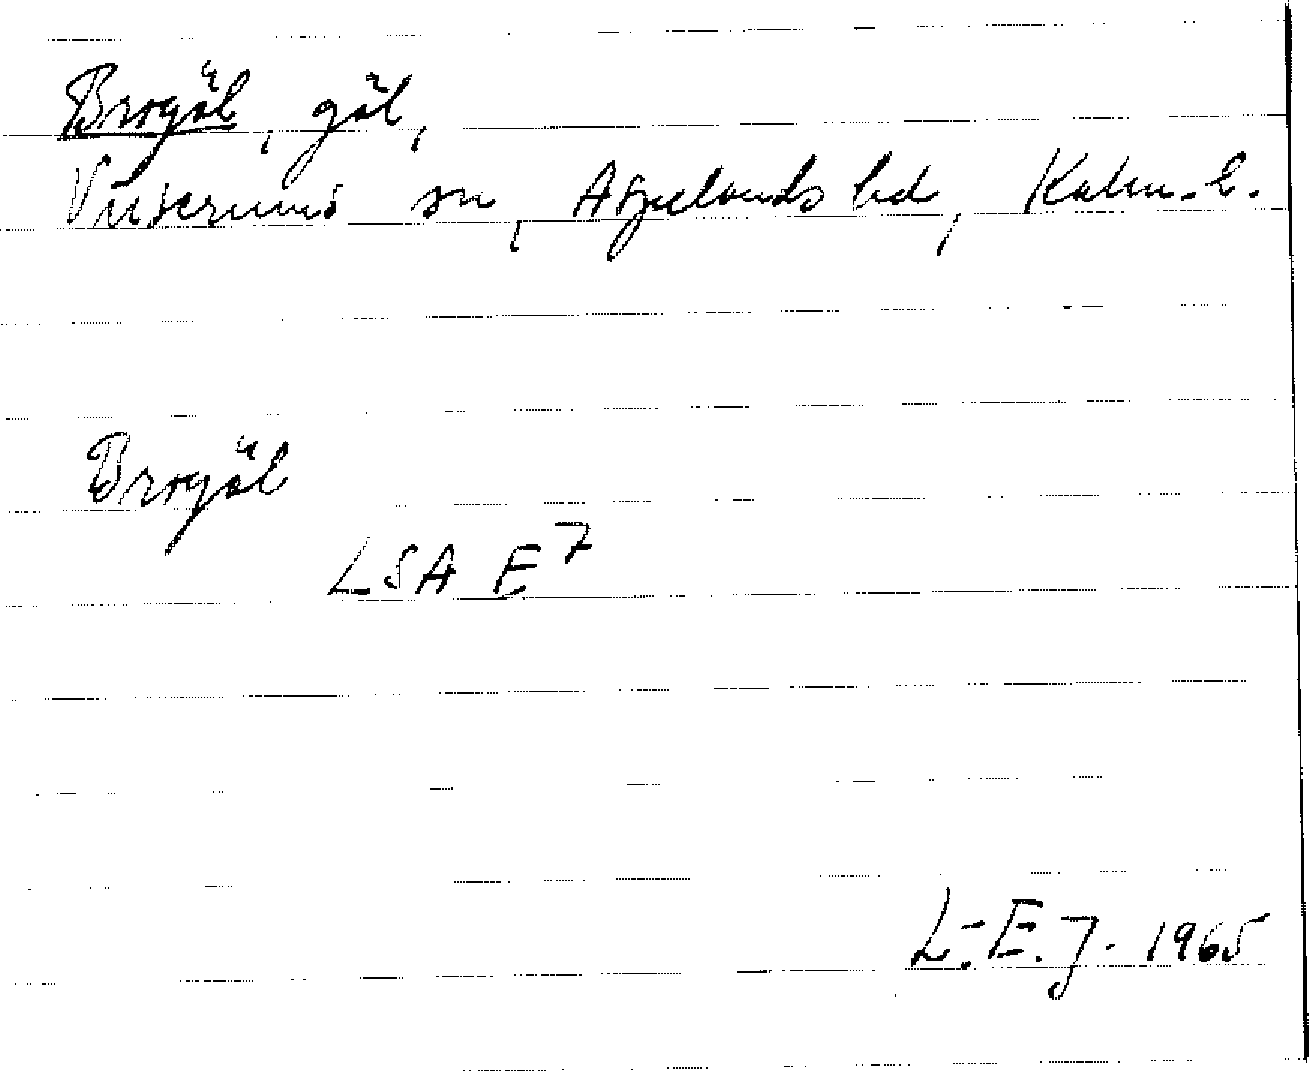 Brogöl, göl,
Virserums sn, Aspelands hd, Kalm. l.
Brogöl
LSA E7
L.-E. J. 1965